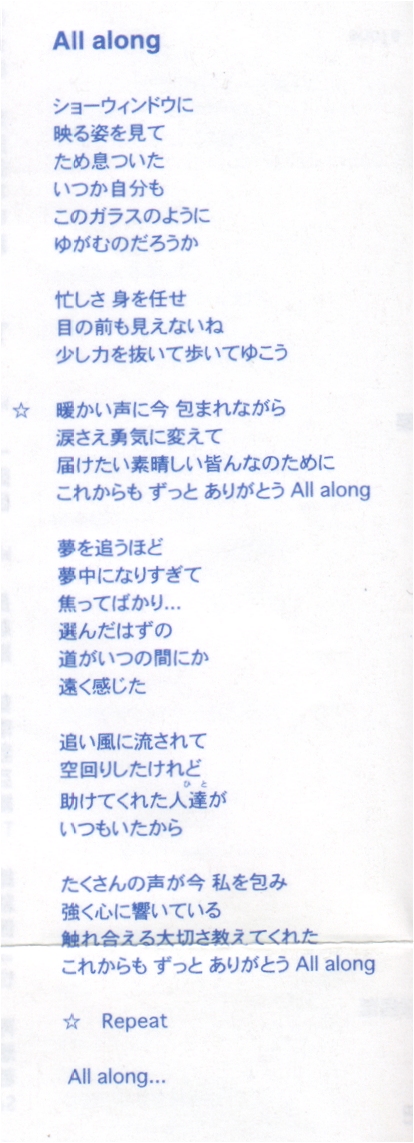 All along
ショーウィンドウに
映る姿を見て
ため息ついた
いつか自分も
このガラスのように
ゆがむのだろうか
忙しさ 身を任せ
目の前も見えないね
少し力を抜いて歩いてゆこう
☆ 暖かい声に今 包まれながら
涙さえ勇気に変えて
届けたい素晴しい皆んなのために
これからも ずっと ありがとう All along
夢を追うほど
夢中になりすぎて
焦ってばかり...
選んだはずの
道がいつの間にか
遠く感じた
追い風に流されて
空回りしたけれど
ひと
助けてくれた人達が
いつもいたから
たくさんの声が今 私を包み
強く心に響いている
触れ合える大切さ教えてくれた
これからも ずっと ありがとう All along
☆ Repeat
All along...